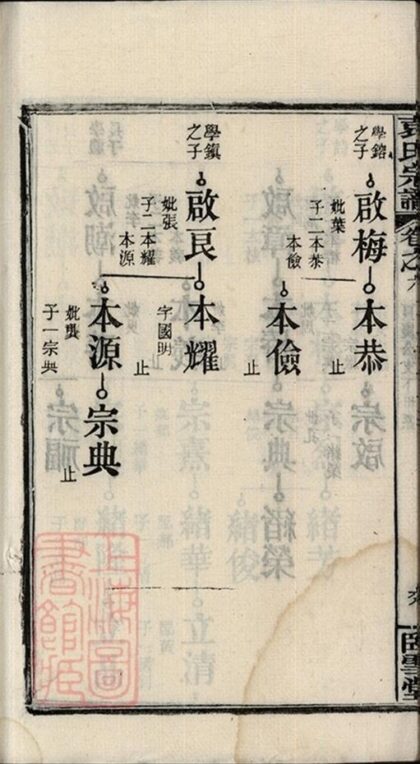 袁氏宗譜
卷之九
臥雲堂
學鎔之子
啟梅
妣葉
子二本恭
本儉
本恭
止
本儉
止
學鎮之子
啟良
妣張
子二本耀
本源
本耀
字國明
止
本源
妣龔
子一宗典
宗典
止
上海圖書館藏